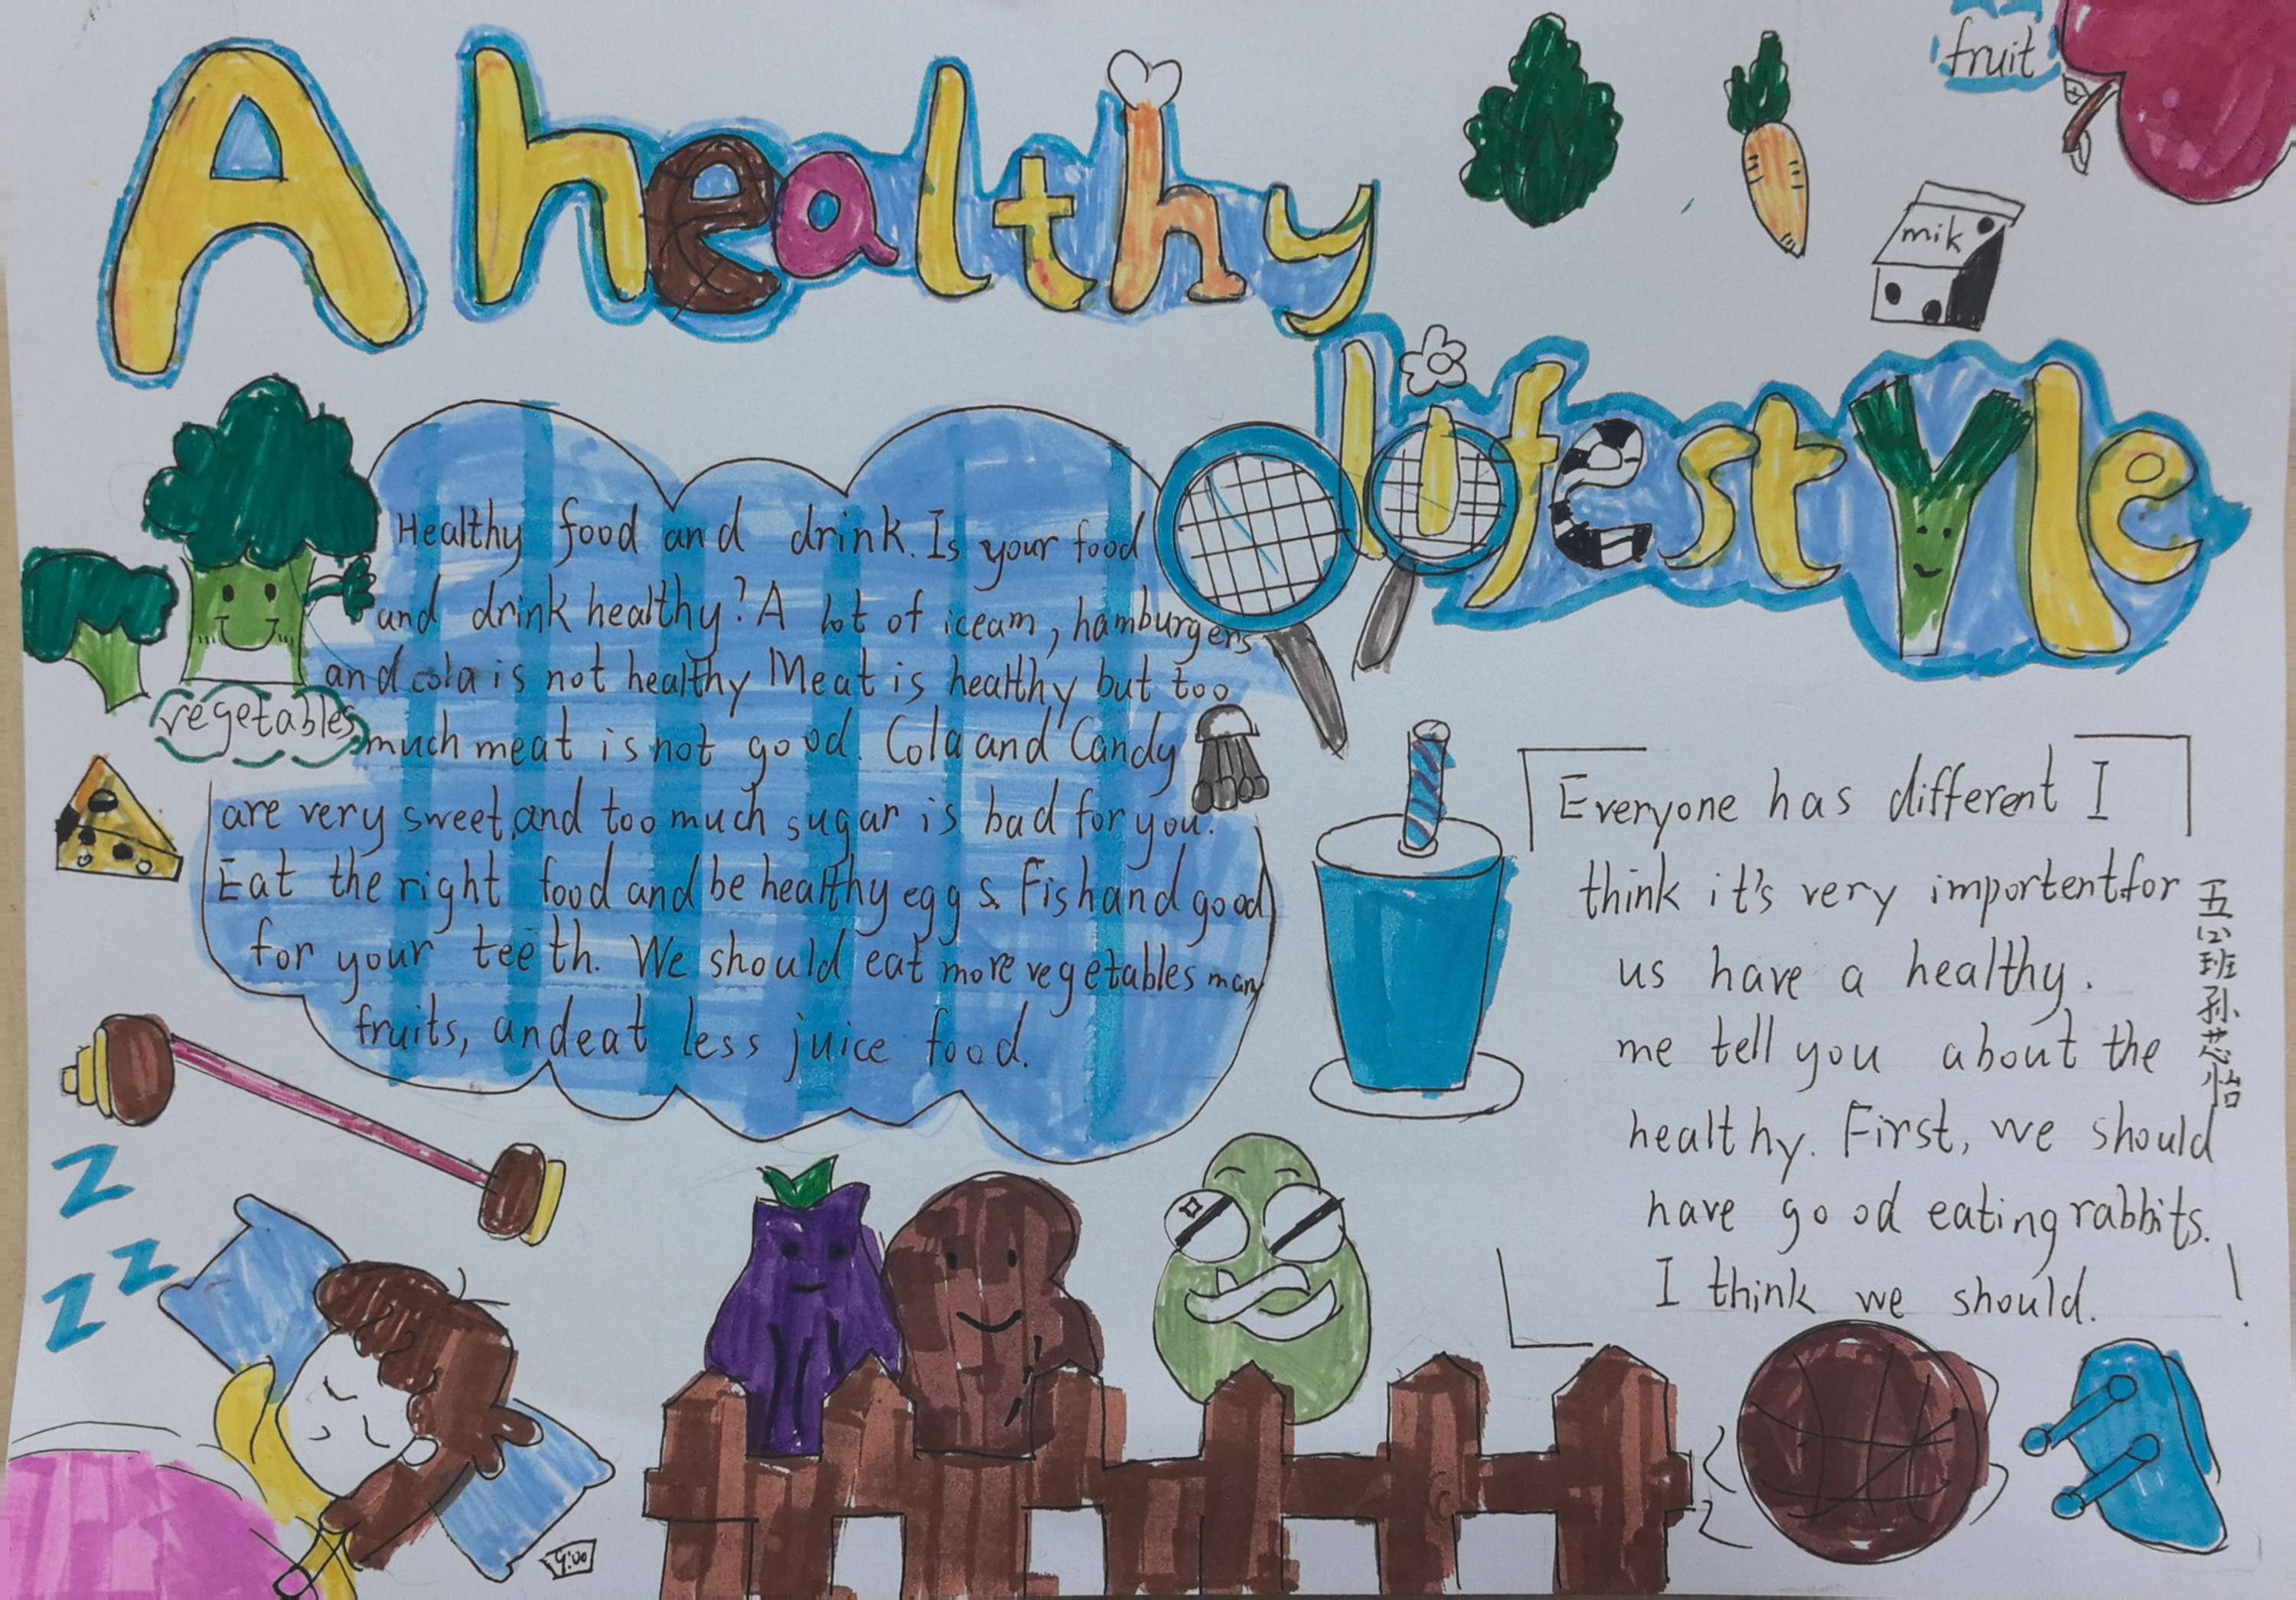 A healthy
lifestyle
fruit
mik
Healthy food and drink. Is your food
and drink healthy? A lot of iceam, hamburgers
and cola is not healthy Meat is healthy but too
much meat is not good. Cola and Candy
are very sweet, and too much sugar is bad for you.
Eat the right food and be healthy eggs. Fish and good
for your teeth. We should eat more vegetables many
fruits, and eat less juice food.
vegetables
Everyone has different I
think it's very importent for
us have a healthy.
me tell you about the
healthy. First, we should
have good eating rabbits.
I think we should.
五(2)班孙芯怡
Z
Z Z
9:00